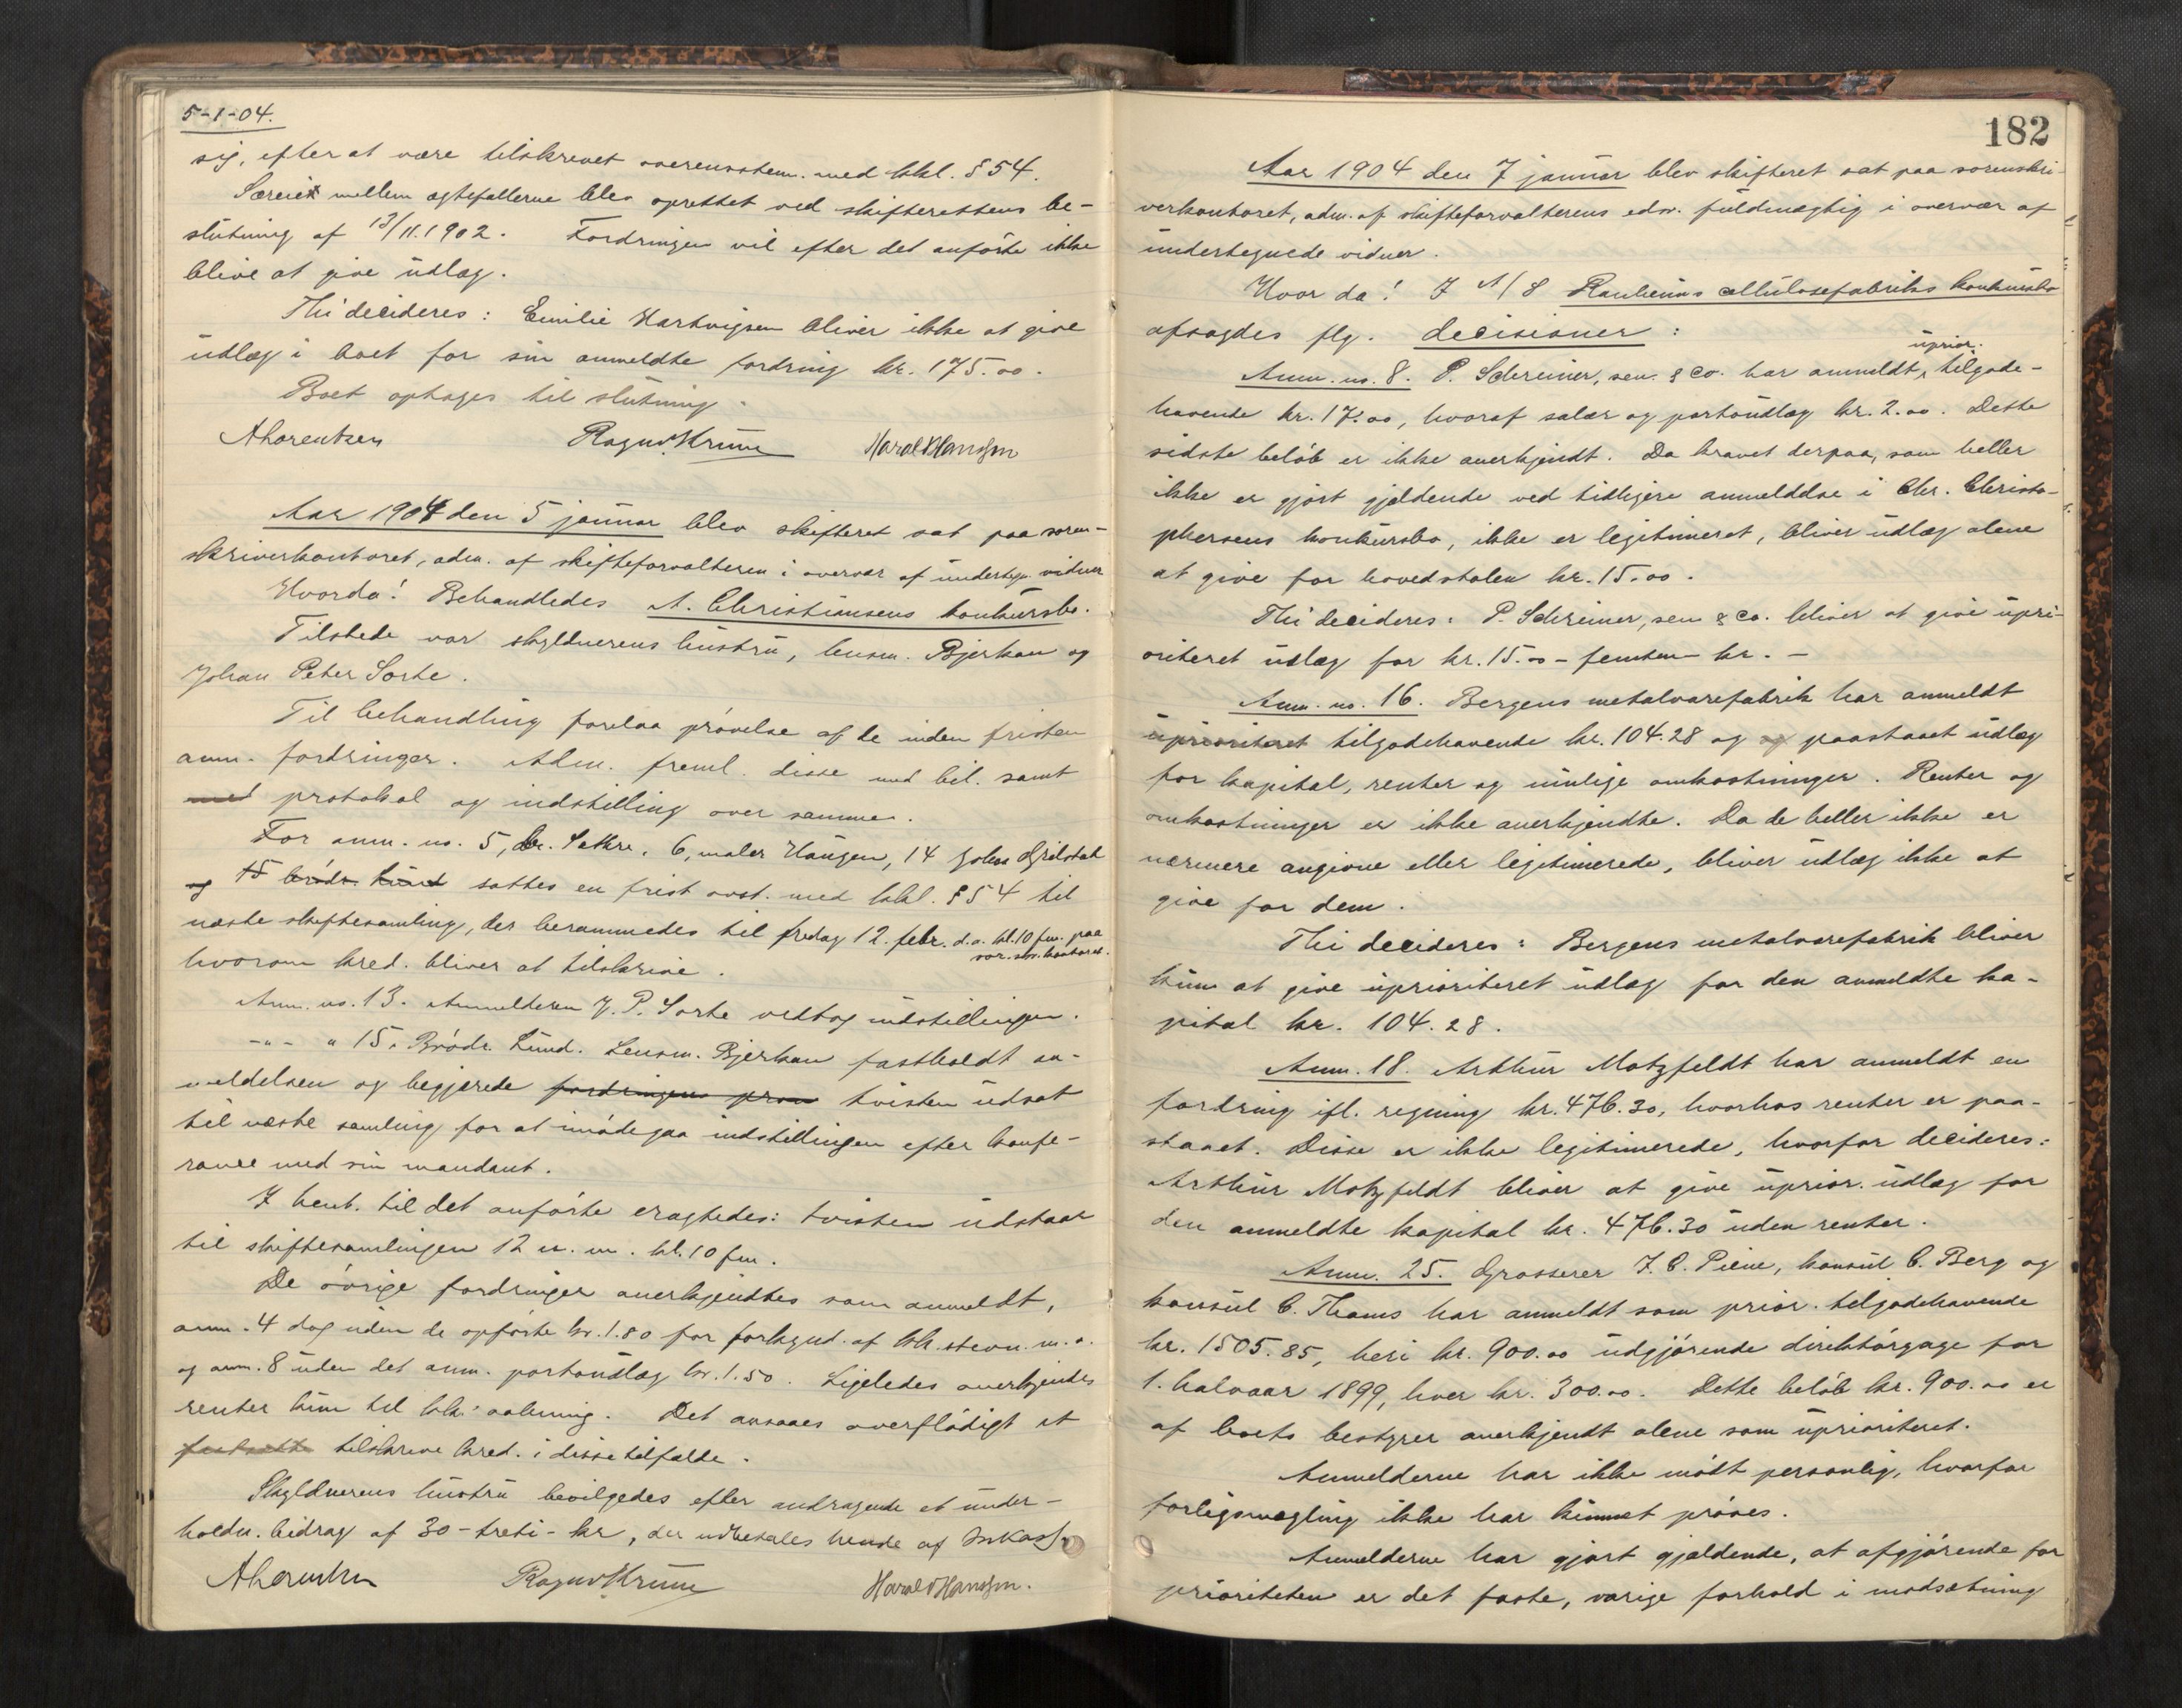 5-1-04.
sig, efter at være tilskrevet overensstem. med kkl. § 54.
Særeiet mellem ægtefællerne blev oprettet ved skifterettens be-
slutning af 13/11.1902. Fordringen vil efter det anførte ikke
blive at give udlæg.
Thi decideres: Emilie Hartvigsen bliver ikke at give
udlæg i boet for sin anmeldte fordring kr. 175.00.
Boet optages til slutning.
A Lorentzen Ragnv. Krüm Harald Hanssen
Aar 1904 den 5 januar blev skifteret sat paa soren-
skriverkontoret, adm. af skifteforvalteren i overvær af undertegn. vidner
Hvorda! Behandledes A. Christiansens konkursbo.
Tilstede var skyldnerens hustru, lensm. Bjerkan og
Johan Peter Sorte.
Til behandling forelaa prøvelse af de inden fristen
anm. fordringer. Adm. freml. disse med bil. samt
med protokol og indstilling over samme.
For anm. no. 5, dr. Sæthre, 6, maler Haugen, 14 John Gjilstad
og 15 brødr. Lund sattes en frist ovst. med kkl. § 54 til
næste skiftesamling, der berammedes til fredag 12. febr. d.a. kl. 10 fm. paa
sor.skr.kontoret.
hvorom kred. bliver at tilskrive.
Anm. no. 13. Anmelderen J. P. Sorte vedtog indstillingen.
-"- " 15. Brødr. Lund. Lensm. Bjerkan fastholdt an-
meldelsen og begjærede fordringens prøv tvisten udsat
til næste samling for at imødegaa indstillingen efter konfe-
rance med sin mandant.
I henh. til det anførte eragtedes: tvisten udstaar
til skiftesamlingen 12 n. m. kl. 10 fm.
De øvrige fordringer anerkjendtes som anmeldt,
anm. 4 dog uden de opførte kr. 1.80 for forkynd. af kk. stevn. m. a.
og anm. 8 uden det anm. portoudlæg kr. 1.50. Ligeledes anerkjendes
renter kun til kk' aabning. Det ansaaes overflødigt at
fastsætte tilskrive kred. i disse tilfælde.
Skyldnerens hustru bevilgedes efter andragende et under-
holdn. bidrag af 30 - treti - kr, der udbetales hende af Inkasso
A Lorentzen Ragnv Krüm Harald Hanssen.
182
Aar 1904 den 7 januar blev skifteret sat paa sorenskri-
verkontoret, adm. af skifteforvalterens edsv. fuldmægtig i overvær af
undertegnede vidner.
Hvor da! I A/S Ranheims cellulosefabriks konkursbo
afsagdes flg. decisioner:
uprior.
Anm. no. 8. P. Schreiner, sen. & co. har anmeldt tilgode-
havende kr. 17.00, hvoraf salær og portoudlæg kr. 2.00. Dette
sidste beløb er ikke anerkjendt. Da kravet derpaa, som heller
ikke er gjort gjældende ved tidligere anmeldelse i Chr. Christo-
phersens konkursbo, ikke er legitimeret, bliver udlæg alene
at give for hovedstolen kr. 15.00.
Thi decideres: P. Schreiner, sen & co. bliver at give upri-
oriteret udlæg for kr. 15.00 - femten - kr. -
Anm. no. 16. Bergens metalvarefabrik har anmeldt
uprioriteret tilgodehavende kr. 104.28 og og paastaaet udlæg
for kapital, renter og mulige omkostninger. Renter og
omkostninger er ikke anerkjendte. Da de heller ikke er
nærmere angivne eller legitimerede, bliver udlæg ikke at
give for dem.
Thi decideres: Bergens metalvarefabrik bliver
kun at give uprioriteret udlæg for den anmeldte ka-
pital kr. 104.28.
Anm. 18. Arthur Motzfeldt har anmeldt en
fordring ifl. regning kr. 476.30, hvorhos renter er paa-
staaet. Disse er ikke legitimerede, hvorfor decideres:
Arthur Motzfeldt bliver at give uprior. udlæg for
den anmeldte kapital kr. 476.30 uden renter.
Anm. 25. Grosserer J. C. Piene, konsul C. Berg og
konsul C. Thams har anmeldt som prior. tilgodehavende
kr. 1505.85, heri kr. 900.00 udgjørende direktørgage for
1. halvaar 1899, hver kr. 300.00. Dette beløb kr. 900.00 er
af boets bestyrer anerkjendt alene som uprioriteret.
Anmelderne har ikke mødt personlig, hvorfor
forligsmægling ikke har kunnet prøves.
Anmelderne har gjort gjældende, at afgjørende for
prioriteten er det faste, varige forhold i modsætning